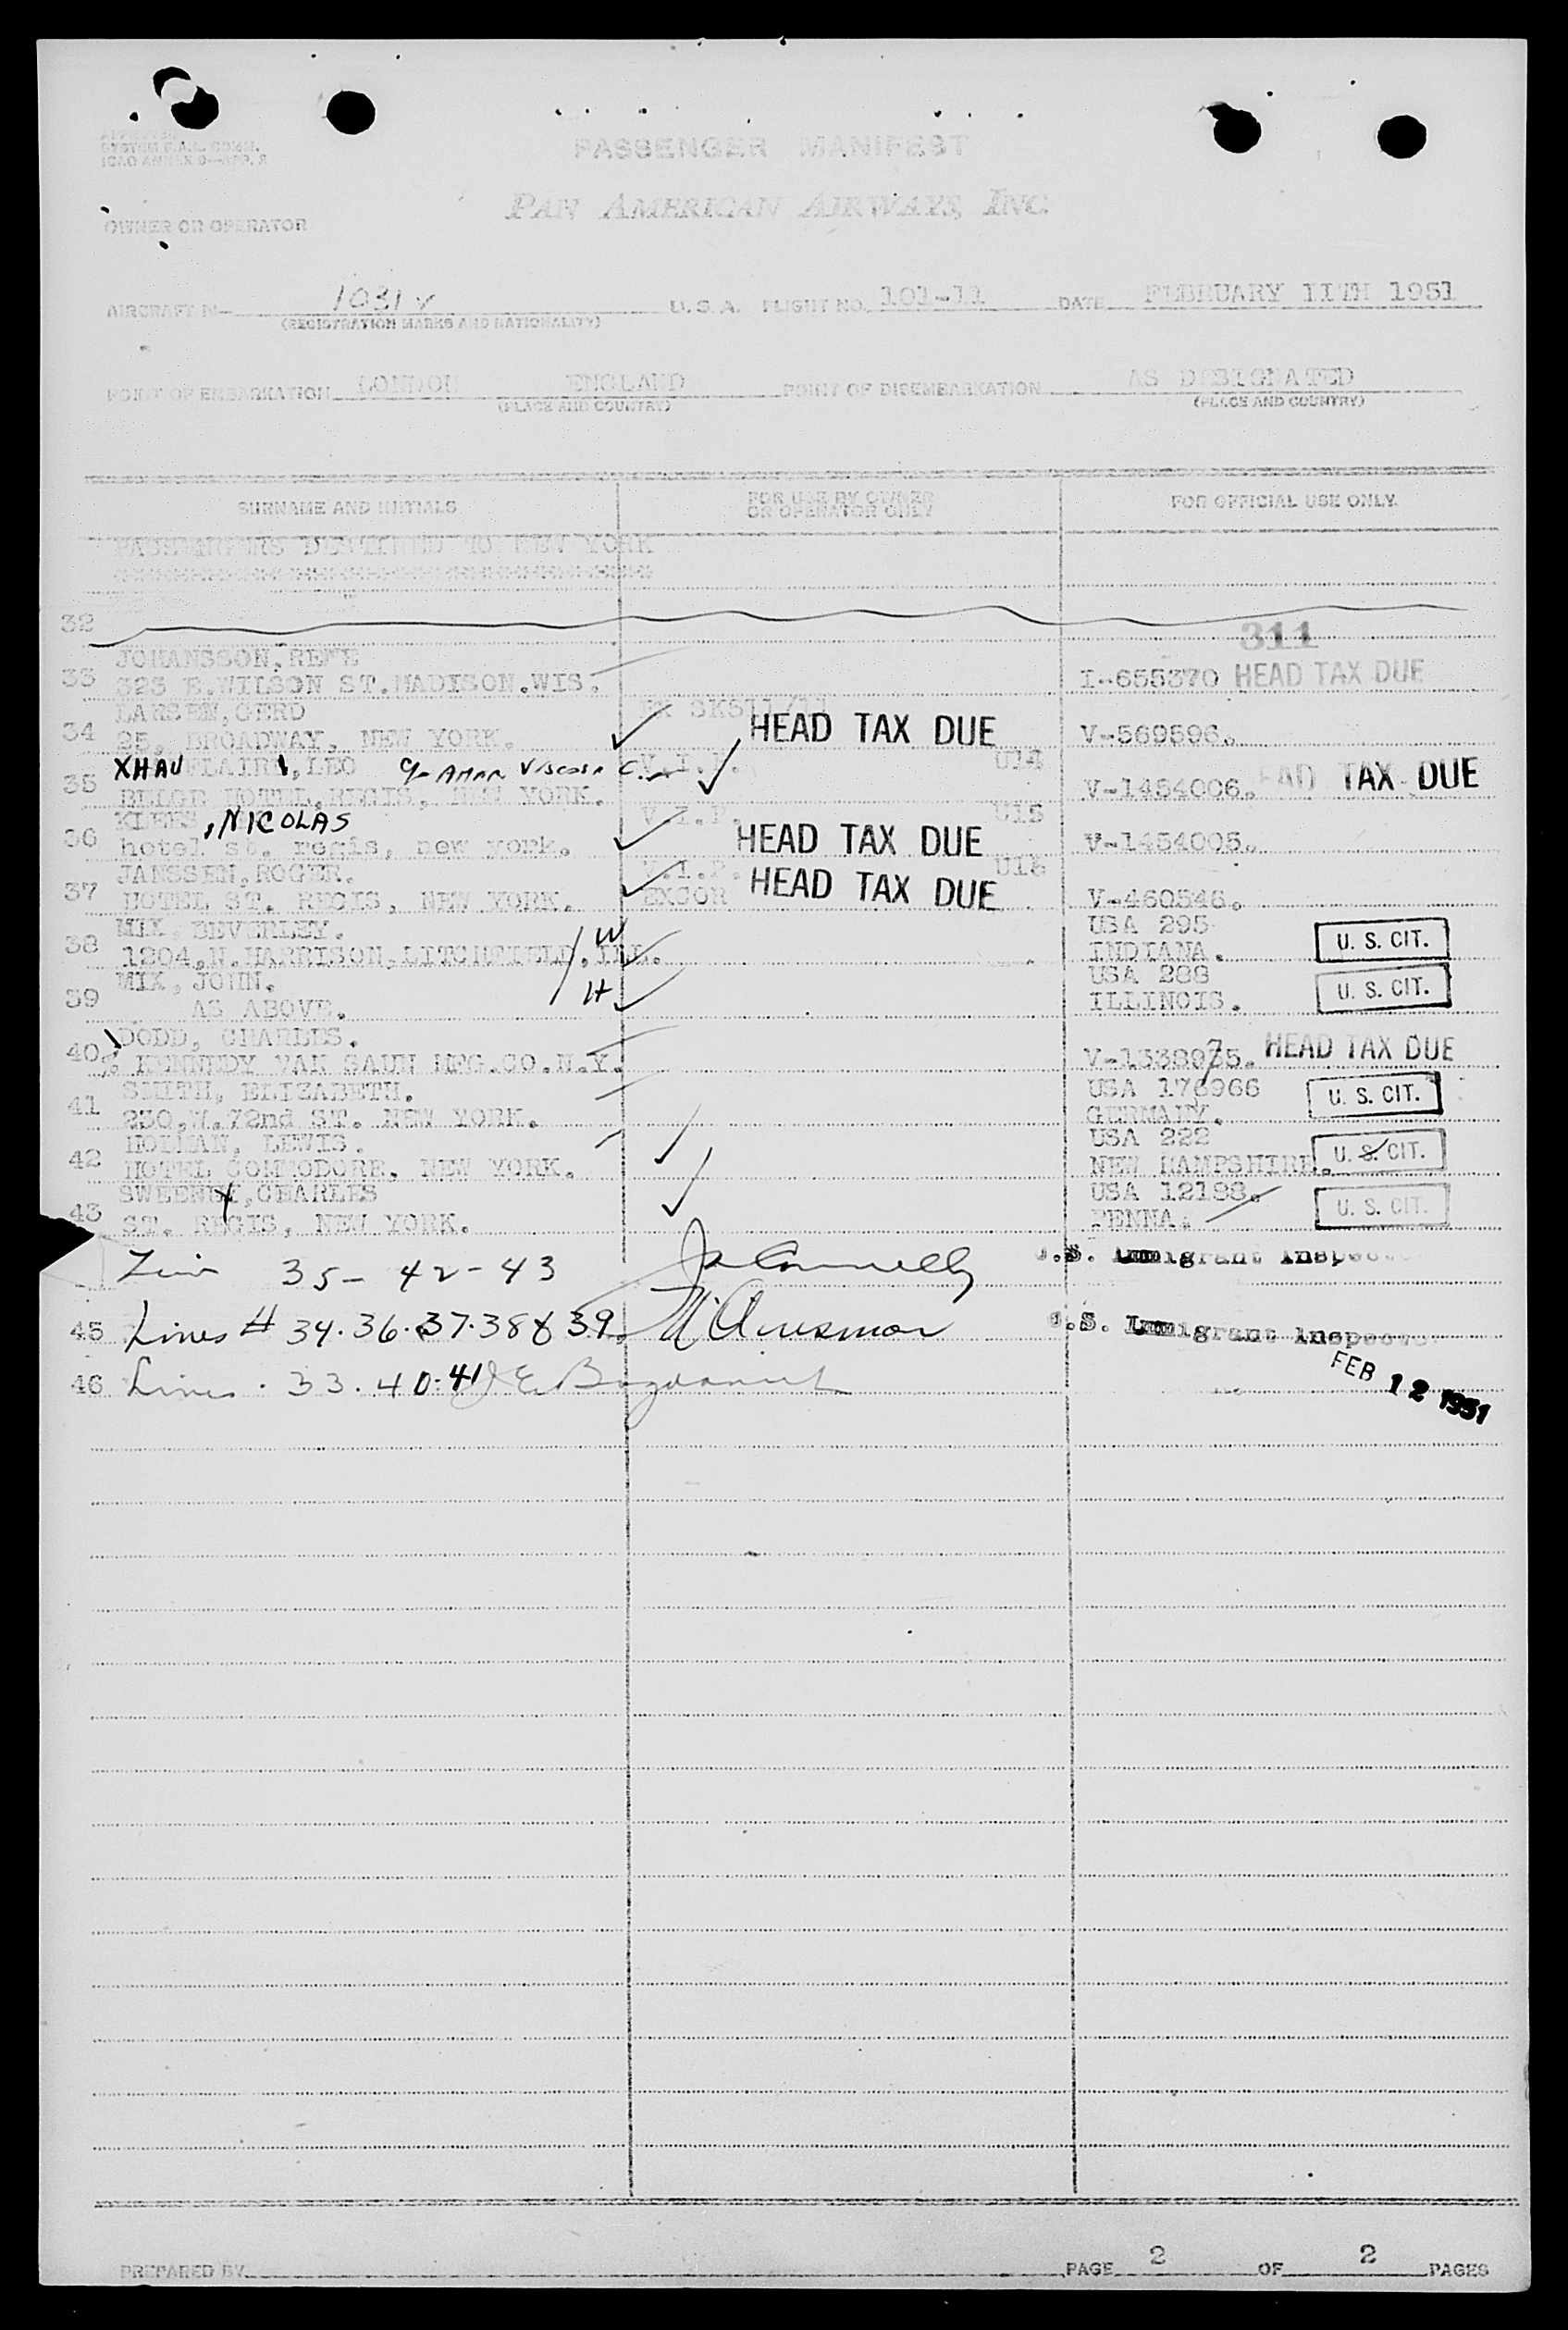 SYSTEM P.A.A. COMM.
ICAO ANNEX 9—APP. 2
PASSENGER MANIFEST
PAN AMERICAN AIRWAYS, INC.
OWNER OR OPERATOR
AIRCRAFT N- 1031V U.S.A. FLIGHT NO. 101-11 DATE FEBRUARY 11TH 1951
(REGISTRATION MARKS AND NATIONALITY)
POINT OF EMBARKATION LONDON ENGLAND POINT OF DISEMBARKATION AS DESIGNATED
(PLACE AND COUNTRY) (PLACE AND COUNTRY)
SURNAME AND INITIALS FOR USE BY OWNER OR OPERATOR ONLY FOR OFFICIAL USE ONLY
PASSENGERS DESTINED TO NEW YORK
32
311
JOHANSSON, RENE
33 323 E.WILSON ST.MADISON.WIS. I-655370 HEAD TAX DUE
LARSEN, GERD SK611/11
34 25, BROADWAY, NEW YORK. HEAD TAX DUE V-569596.
XHAU FLAIR, LEO C/o Amer Viscose C. V.I.P. U14
35 HOTEL, REGIS, NEW YORK. V-1454006. TAX DUE
, NICOLAS V.I.P. U15
36 hotel st. regis, new york. HEAD TAX DUE V-1454005.
JANSSEN, ROGER. V.I.P. U16
37 HOTEL ST. REGIS, NEW YORK. EXCOR HEAD TAX DUE V-460546.
MIX, BEVERLEY. W USA 295
38 1204, N. HARRISON, LITCHFIELD, ILL. INDIANA. U. S. CIT.
MIX, JOHN. H USA 288
39 AS ABOVE. ILLINOIS. U. S. CIT.
DODD, CHARLES.
40 % KENNEDY VAN SAUN MFG.CO.N.Y. V-1338975. HEAD TAX DUE
SMITH, ELIZABETH. USA 176966
41 230, W. 72nd ST. NEW YORK. GERMANY. U. S. CIT.
HOLMAN, LEWIS. USA 222
42 HOTEL COMMODORE, NEW YORK. NEW HAMPSHIRE. U. S. CIT.
SWEENEY, CHARLES USA 12188.
43 ST. REGIS, NEW YORK. PENNA. U. S. CIT.
35 - 42 - 43 U.S. Immigrant Inspector
45 Lines # 34.36.37.38 & 39. U.S. Immigrant Inspector
FEB 12 1951
46 Lines . 33.40.41
PREPARED BY PAGE 2 OF 2 PAGES